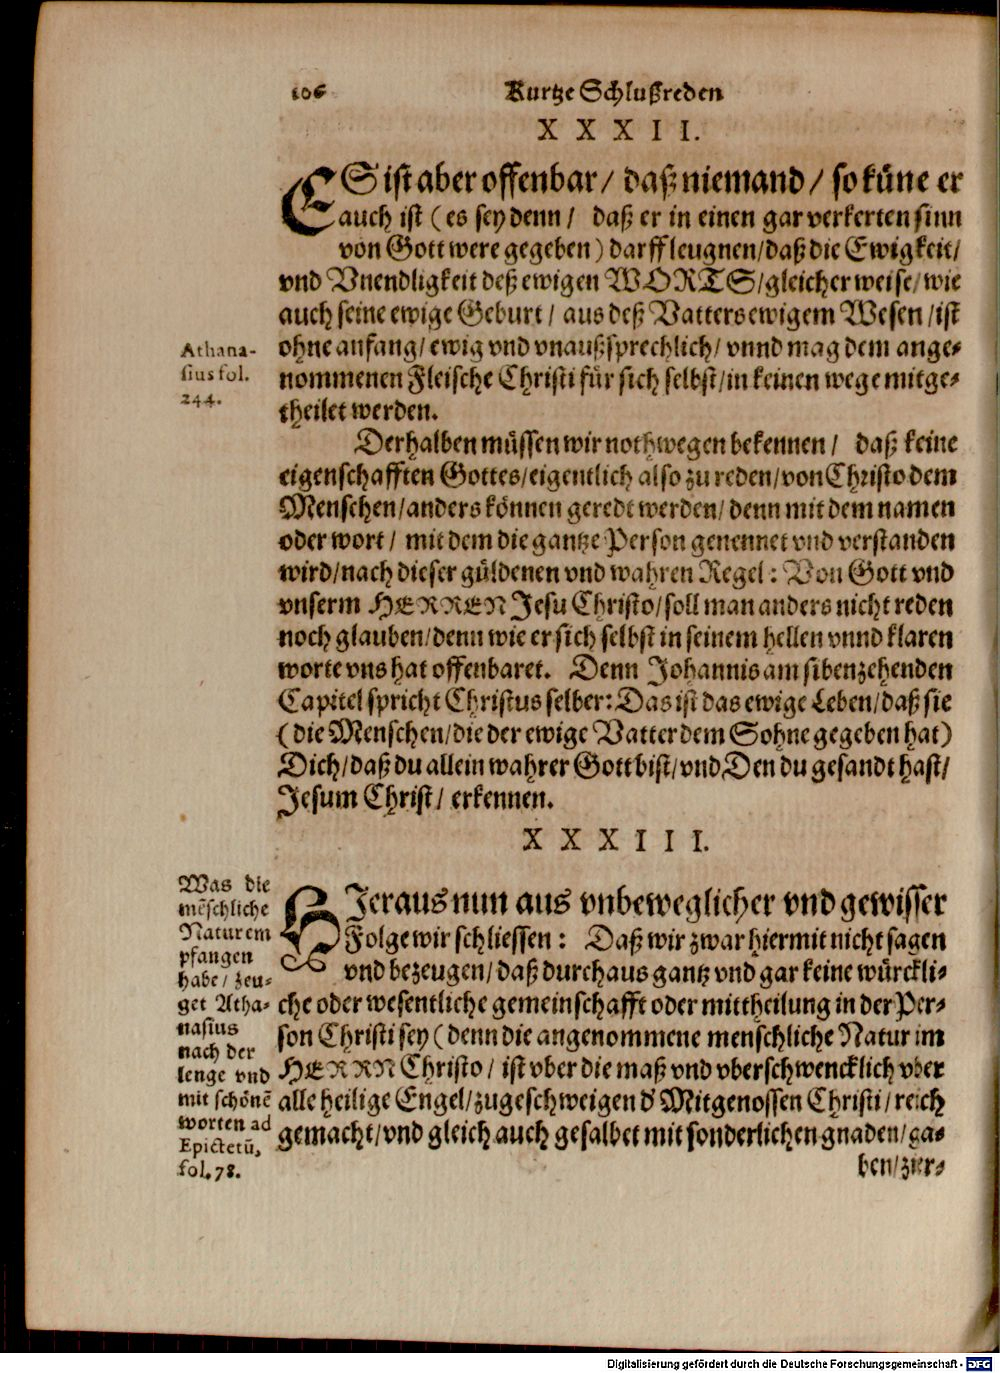 106 Kurtze Schlußreden
XXXII.
ES ist aber offenbar / daß niemand / so küne er
auch ist ( es sey denn / daß er in einen gar verkerten sinn
von Gott were gegeben ) darff leugnen / daß die Ewigkeit /
vnd Vnendligkeit deß ewigen WORTS / gleicher weise / wie
auch seine ewige Geburt / aus deß Vatters ewigem Wesen / ist
ohne anfang / ewig vnd vnaußsprechlich / vnnd mag dem ange-
nommenen Fleische Christi für sich selbst / in keinen wege mitge-
theilet werden.
Athana-
sius fol.
244.
Derhalben müssen wir nothwegen bekennen / daß keine
eigenschafften Gottes / eigentlich also zu reden / von Christo dem
Menschen / anders können geredt werden / denn mit dem namen
oder wort / mit dem die gantze Person genennet vnd verstanden
wird / nach dieser güldenen vnd wahren Regel : Von Gott vnd
vnserm HERREN Jesu Christo / soll man anders nicht reden
noch glauben / denn wie er sich selbst in seinem hellen vnnd klaren
worte vns hat offenbaret. Denn Johannis am sibenzehenden
Capitel spricht Christus selber : Das ist das ewige Leben / daß sie
( die Menschen / die der ewige Vatter dem Sohne gegeben hat )
Dich / daß du allein wahrer Gott bist / vnd Den du gesandt hast /
Jesum Christ / erkennen.
XXXIII.
HJeraus nun aus vnbeweglicher vnd gewisser
Folge wir schliessen : Daß wir zwar hiermit nicht sagen
vnd bezeugen / daß durchaus gantz vnd gar keine würckli-
che oder wesentliche gemeinschafft oder mittheilung in der Per-
son Christi sey ( denn die angenommene menschliche Natur im
HERRN Christo / ist vber die maß vnd vberschwencklich vber
alle heilige Engel / zugeschweigen d' Mitgenossen Christi / reich
gemacht / vnd gleich auch gesalbet mit sonderlichen gnaden / ga-
ben / zier-
Was die
mēschliche
Natur em
pfangen
habe / zeu-
get Atha-
nasius
nach der
lenge vnd
mit schönē
worten ad
Epictetū,
fol. 78.
Digitalisierung gefördert durch die Deutsche Forschungsgemeinschaft - DFG